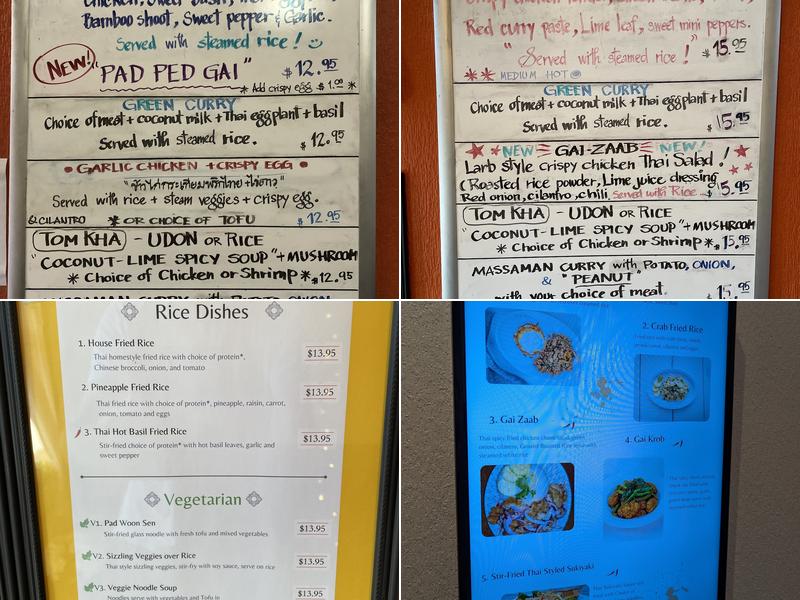 Bamboo shoot, Sweet pepper & Garlic.
Served with steamed rice !
NEW! "PAD PED GAI" $12.95
* Add crispy egg $1.00 *
GREEN CURRY
Choice of meat + coconut milk + Thai eggplant + basil
Served with steamed rice. $12.95
• GARLIC CHICKEN + CRISPY EGG •
Served with rice + steam veggies + crispy egg.
& CILANTRO * OR CHOICE OF TOFU $12.95
TOM KHA - UDON OR RICE
"COCONUT-LIME SPICY SOUP" + MUSHROOM
* Choice of Chicken or Shrimp * $12.95
Red curry paste, Lime leaf, sweet mini peppers.
"Served with steamed rice !" $15.95
** MEDIUM HOT
GREEN CURRY
Choice of meat + coconut milk + Thai eggplant + basil
Served with steamed rice. $15.95
NEW GAI-ZAAB NEW!
Larb style crispy chicken Thai Salad !
(Roasted rice powder, Lime juice dressing
Red onion, cilantro, chili, Served with Rice $15.95
TOM KHA - UDON OR RICE
"COCONUT-LIME SPICY SOUP" + MUSHROOM
* Choice of Chicken or Shrimp * $15.95
MASSAMAN CURRY with POTATO, ONION,
& "PEANUT"
with your choice of meat. $15.95
Rice Dishes
1. House Fried Rice $13.95
Thai homestyle fried rice with choice of protein*,
Chinese broccoli, onion, and tomato
2. Pineapple Fried Rice $13.95
Thai fried rice with choice of protein*, pineapple, raisin, carrot,
onion, tomato and eggs
3. Thai Hot Basil Fried Rice $13.95
Stir-fried choice of protein* with hot basil leaves, garlic and
sweet pepper
Vegetarian
V1. Pad Woon Sen $13.95
Stir-fried glass noodle with fresh tofu and mixed vegetables
V2. Sizzling Veggies over Rice $13.95
Thai style sizzling veggies, stir-fry with soy sauce, serve on rice
V3. Veggie Noodle Soup $13.95
Noodles serve with vegetables and Tofu in
2. Crab Fried Rice
3. Gai Zaab
4. Gai Krob
5. Stir-Fried Thai Styled Sukiyaki